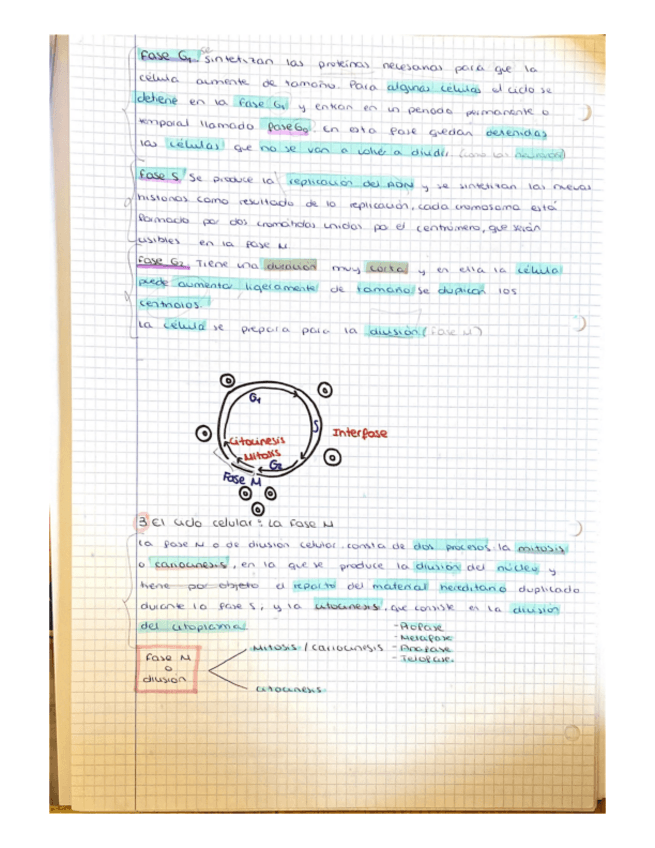 Fase G₁ se sintetizan las proteínas necesarias para que la
célula aumente de tamaño. Para algunas células el ciclo se
detiene en la fase G₁ y entran en un periodo permanente o
temporal llamado fase G₀ en esta fase quedan detenidas
las células que no se van a volver a dividir (como las neuronas)
Fase S se produce la replicación del ADN y se sintetizan las nuevas
histonas como resultado de la replicación, cada cromosoma está
formado por dos cromátidas unidas por el centrómero, que serán
visibles en la fase M
Fase G₂ Tiene una duración muy corta y en ella la célula
puede aumentar ligeramente de tamaño se duplican los
centriolos.
La célula se prepara para la división (fase M)
G₁
S
Interfase
Citocinesis
Mitosis
G₂
Fase M
3 El ciclo celular: La fase M
La fase M o de división celular consta de dos procesos la mitosis
o cariocinesis, en la que se produce la división del núcleo y
tiene por objeto el reparto del material hereditario duplicado
durante la fase S, y la citocinesis, que consiste en la división
del citoplasma
Fase M
o
división
Mitosis / cariocinesis
- Profase
- Metafase
- Anafase
- Telofase.
citocinesis